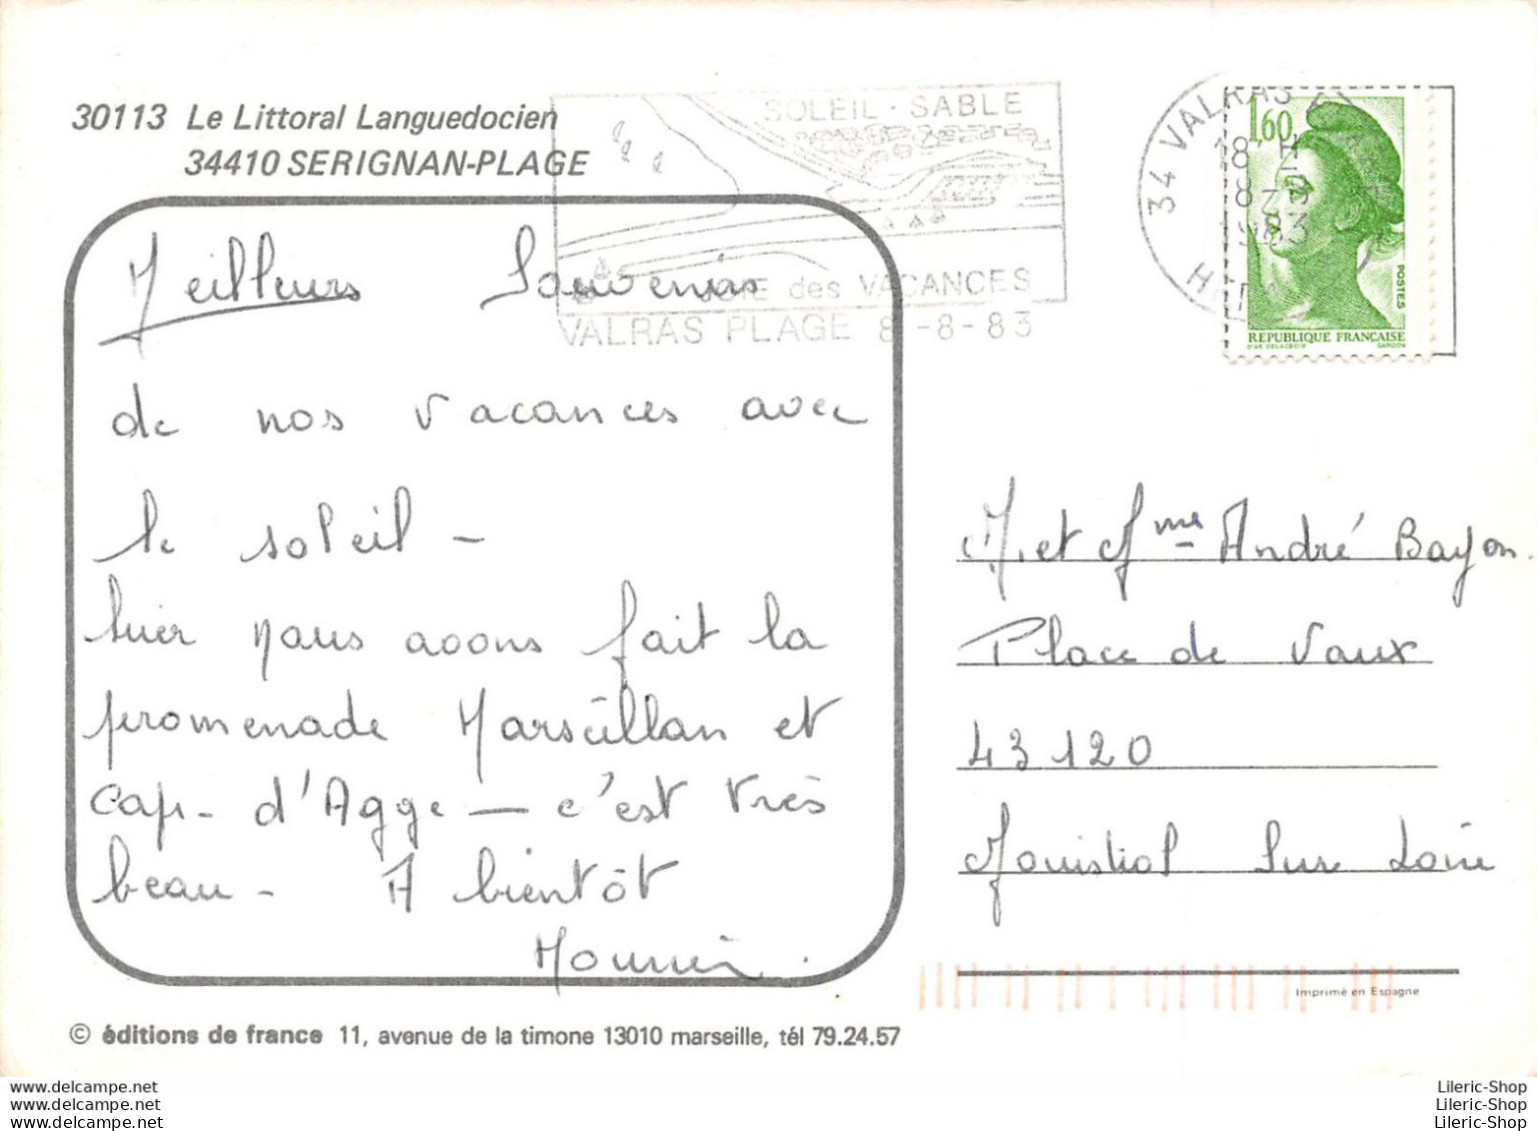 30113 Le Littoral Languedocien
34410 SERIGNAN-PLAGE
SOLEIL · SABLE
JOIE des VACANCES
VALRAS PLAGE 8 -8-83
34 VALRAS
18 H
8
1983
1,60
POSTES
REPUBLIQUE FRANÇAISE
D'AP. DELACROIX GANDON
Meilleurs Souvenirs
de nos vacances avec
le soleil -
hier nous avons fait la
promenade Marseillan et
cap - d'Agge - c'est très
beau - A bientôt
M. et Mme André Bayon.
Place de Vaux
43120
Monistrol Sur Loire
Imprimé en Espagne
© éditions de france 11, avenue de la timone 13010 marseille, tél 79.24.57
www.delcampe.net
Lileric-Shop
www.delcampe.net
Lileric-Shop
www.delcampe.net
Lileric-Shop